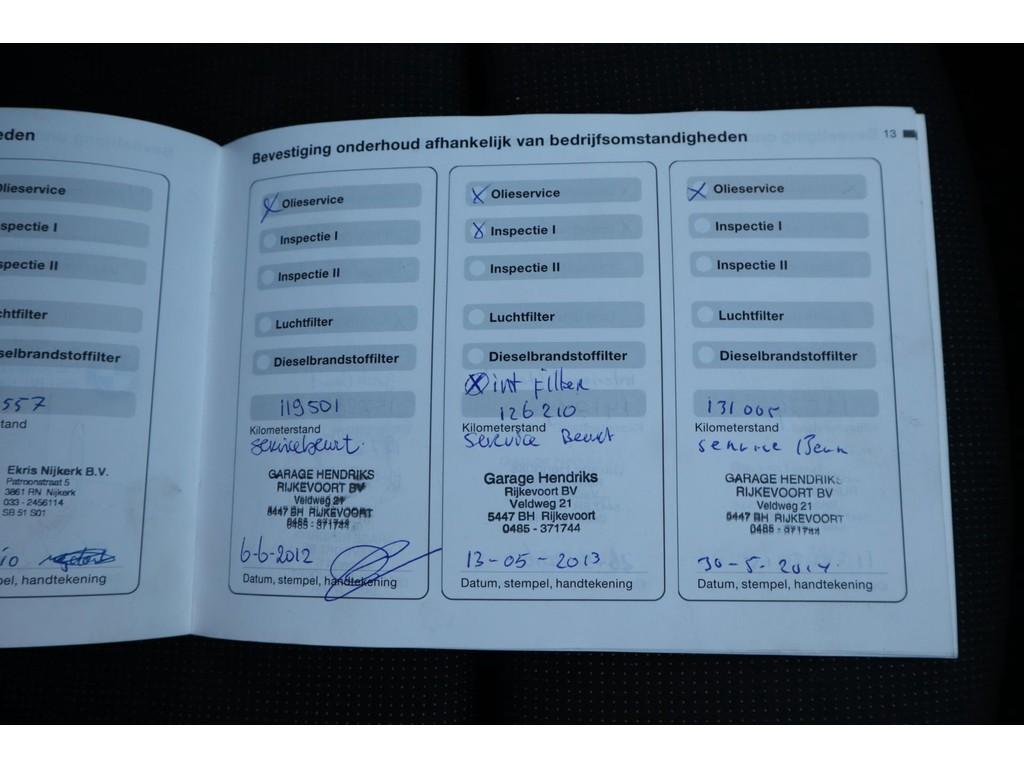 eden
Olieservice
spectie I
spectie II
chtfilter
selbrandstoffilter
557
tand
Ekris Nijkerk B.V.
Patroonstraat 5
3861 RN Nijkerk
033 - 2456114
SB 51 S01
pel, handtekening
Bevestiging onderhoud afhankelijk van bedrijfsomstandigheden
13
X Olieservice
Inspectie I
Inspectie II
Luchtfilter
Dieselbrandstoffilter
119501
Kilometerstand
servicebeurt.
GARAGE HENDRIKS
RIJKEVOORT BV
Veldweg 21
5447 BH RIJKEVOORT
0485 - 371744
6-6-2012
Datum, stempel, handtekening
X Olieservice
X Inspectie I
Inspectie II
Luchtfilter
Dieselbrandstoffilter
X int filter
126210
Kilometerstand
Service Beurt
Garage Hendriks
Rijkevoort BV
Veldweg 21
5447 BH Rijkevoort
0485 - 371744
13-05-2013
Datum, stempel, handtekening
X Olieservice
Inspectie I
Inspectie II
Luchtfilter
Dieselbrandstoffilter
131005
Kilometerstand
service
GARAGE HENDRIKS
RIJKEVOORT BV
Veldweg 21
5447 BH RIJKEVOORT
0485 - 371744
30-5-2014
Datum, stempel, handtekening